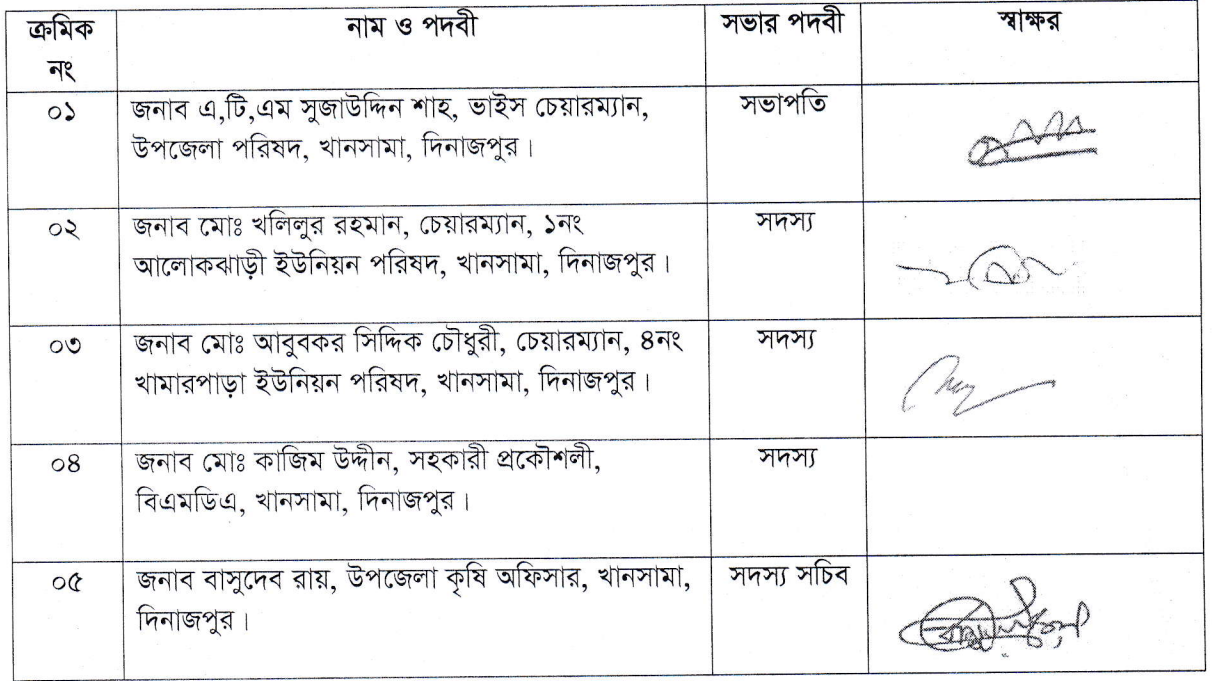 ক্রমিক নং নাম ও পদবী সভার পদবী স্বাক্ষর
০১ জনাব এ,টি,এম সুজাউদ্দিন শাহ, ভাইস চেয়ারম্যান, সভাপতি
উপজেলা পরিষদ, খানসামা, দিনাজপুর।
০২ জনাব মোঃ খলিলুর রহমান, চেয়ারম্যান, ১নং সদস্য
আলোকঝাড়ী ইউনিয়ন পরিষদ, খানসামা, দিনাজপুর।
০৩ জনাব মোঃ আবুবকর সিদ্দিক চৌধুরী, চেয়ারম্যান, ৪নং সদস্য
খামারপাড়া ইউনিয়ন পরিষদ, খানসামা, দিনাজপুর।
০৪ জনাব মোঃ কাজিম উদ্দীন, সহকারী প্রকৌশলী, সদস্য
বিএমডিএ, খানসামা, দিনাজপুর।
০৫ জনাব বাসুদেব রায়, উপজেলা কৃষি অফিসার, খানসামা, সদস্য সচিব
দিনাজপুর।